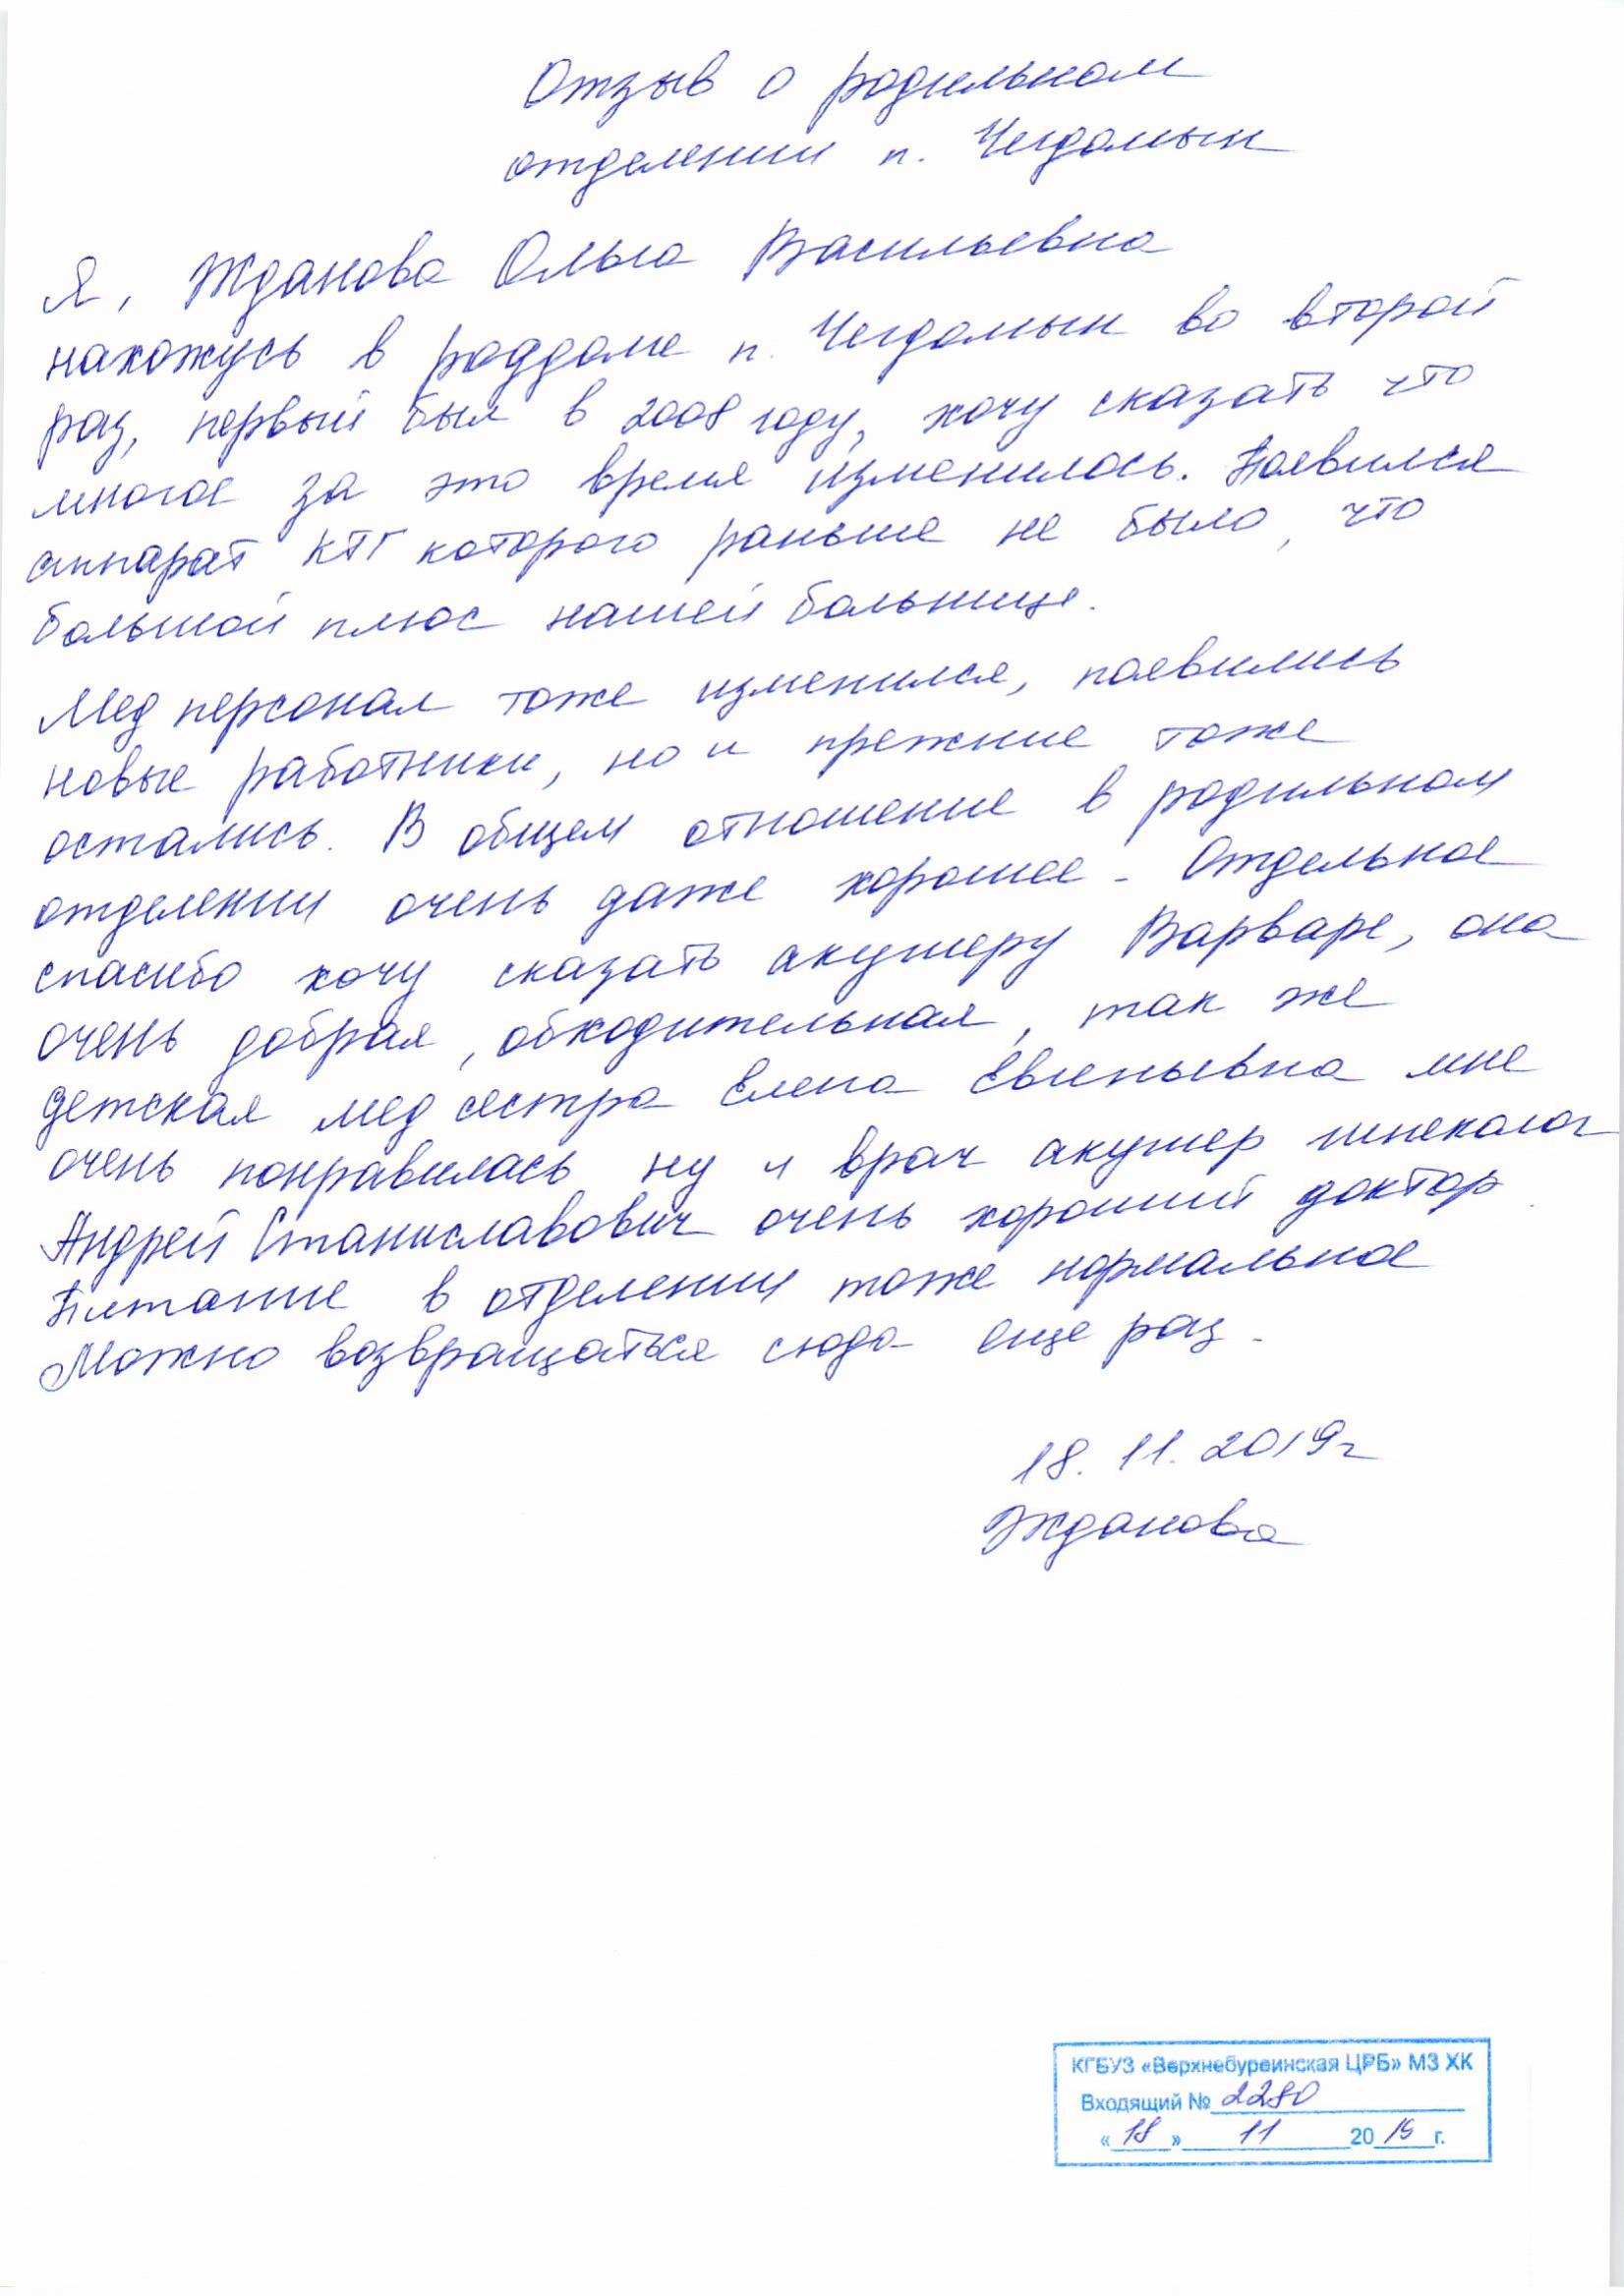 Отзыв о родильном
отделении п. Чегдомын
Я, Жданова Ольга Васильевна
нахожусь в роддоме п. Чегдомын во второй
раз, первый был в 2008 году, хочу сказать что
многое за это время изменилось. Появился
аппарат КТГ которого раньше не было, что
большой плюс нашей больнице.
Мед персонал тоже изменился, появились
новые работники, но и прежние тоже
остались. В общем отношение в родильном
отделении очень даже хорошее. Отдельное
спасибо хочу сказать акушеру Варваре, она
очень добрая, обходительная, так же
детская мед сестра Елена Евгеньевна мне
очень понравилась ну и врач акушер гинеколог
Андрей Станиславович очень хороший доктор.
Питание в отделении тоже нормальное
Можно возвращаться сюда еще раз.
18. 11. 2019г
Жданова
КГБУЗ «Верхнебуреинская ЦРБ» МЗ ХК
Входящий № 2280
«18» 11 2019 г.